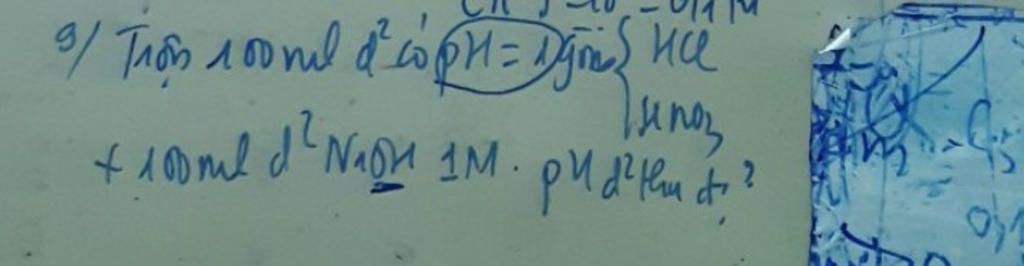 9/ Trộn 100ml d² có pH = 1 gồm { HCl
HNO₃
+ 100ml d² NaOH 1M. pH d² thu đc?